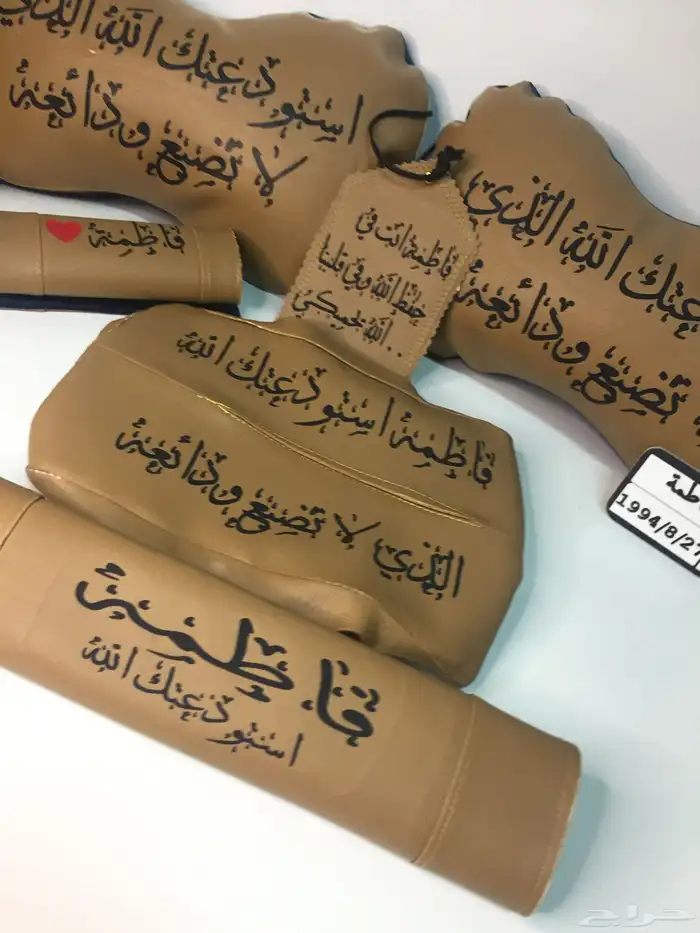 استودعتك الله الذي
لا تضيع ودائعة
فاطمة
فاطمة انت في
حفظ الله وفي قلبنا
الله يحميكي..
عتك الله الذي
تضيع ودائعة
فاطمة استودعتك الله
الذي لا تضيع ودائعة
1994/8/27
فاطمة
استودعتك الله
حراج